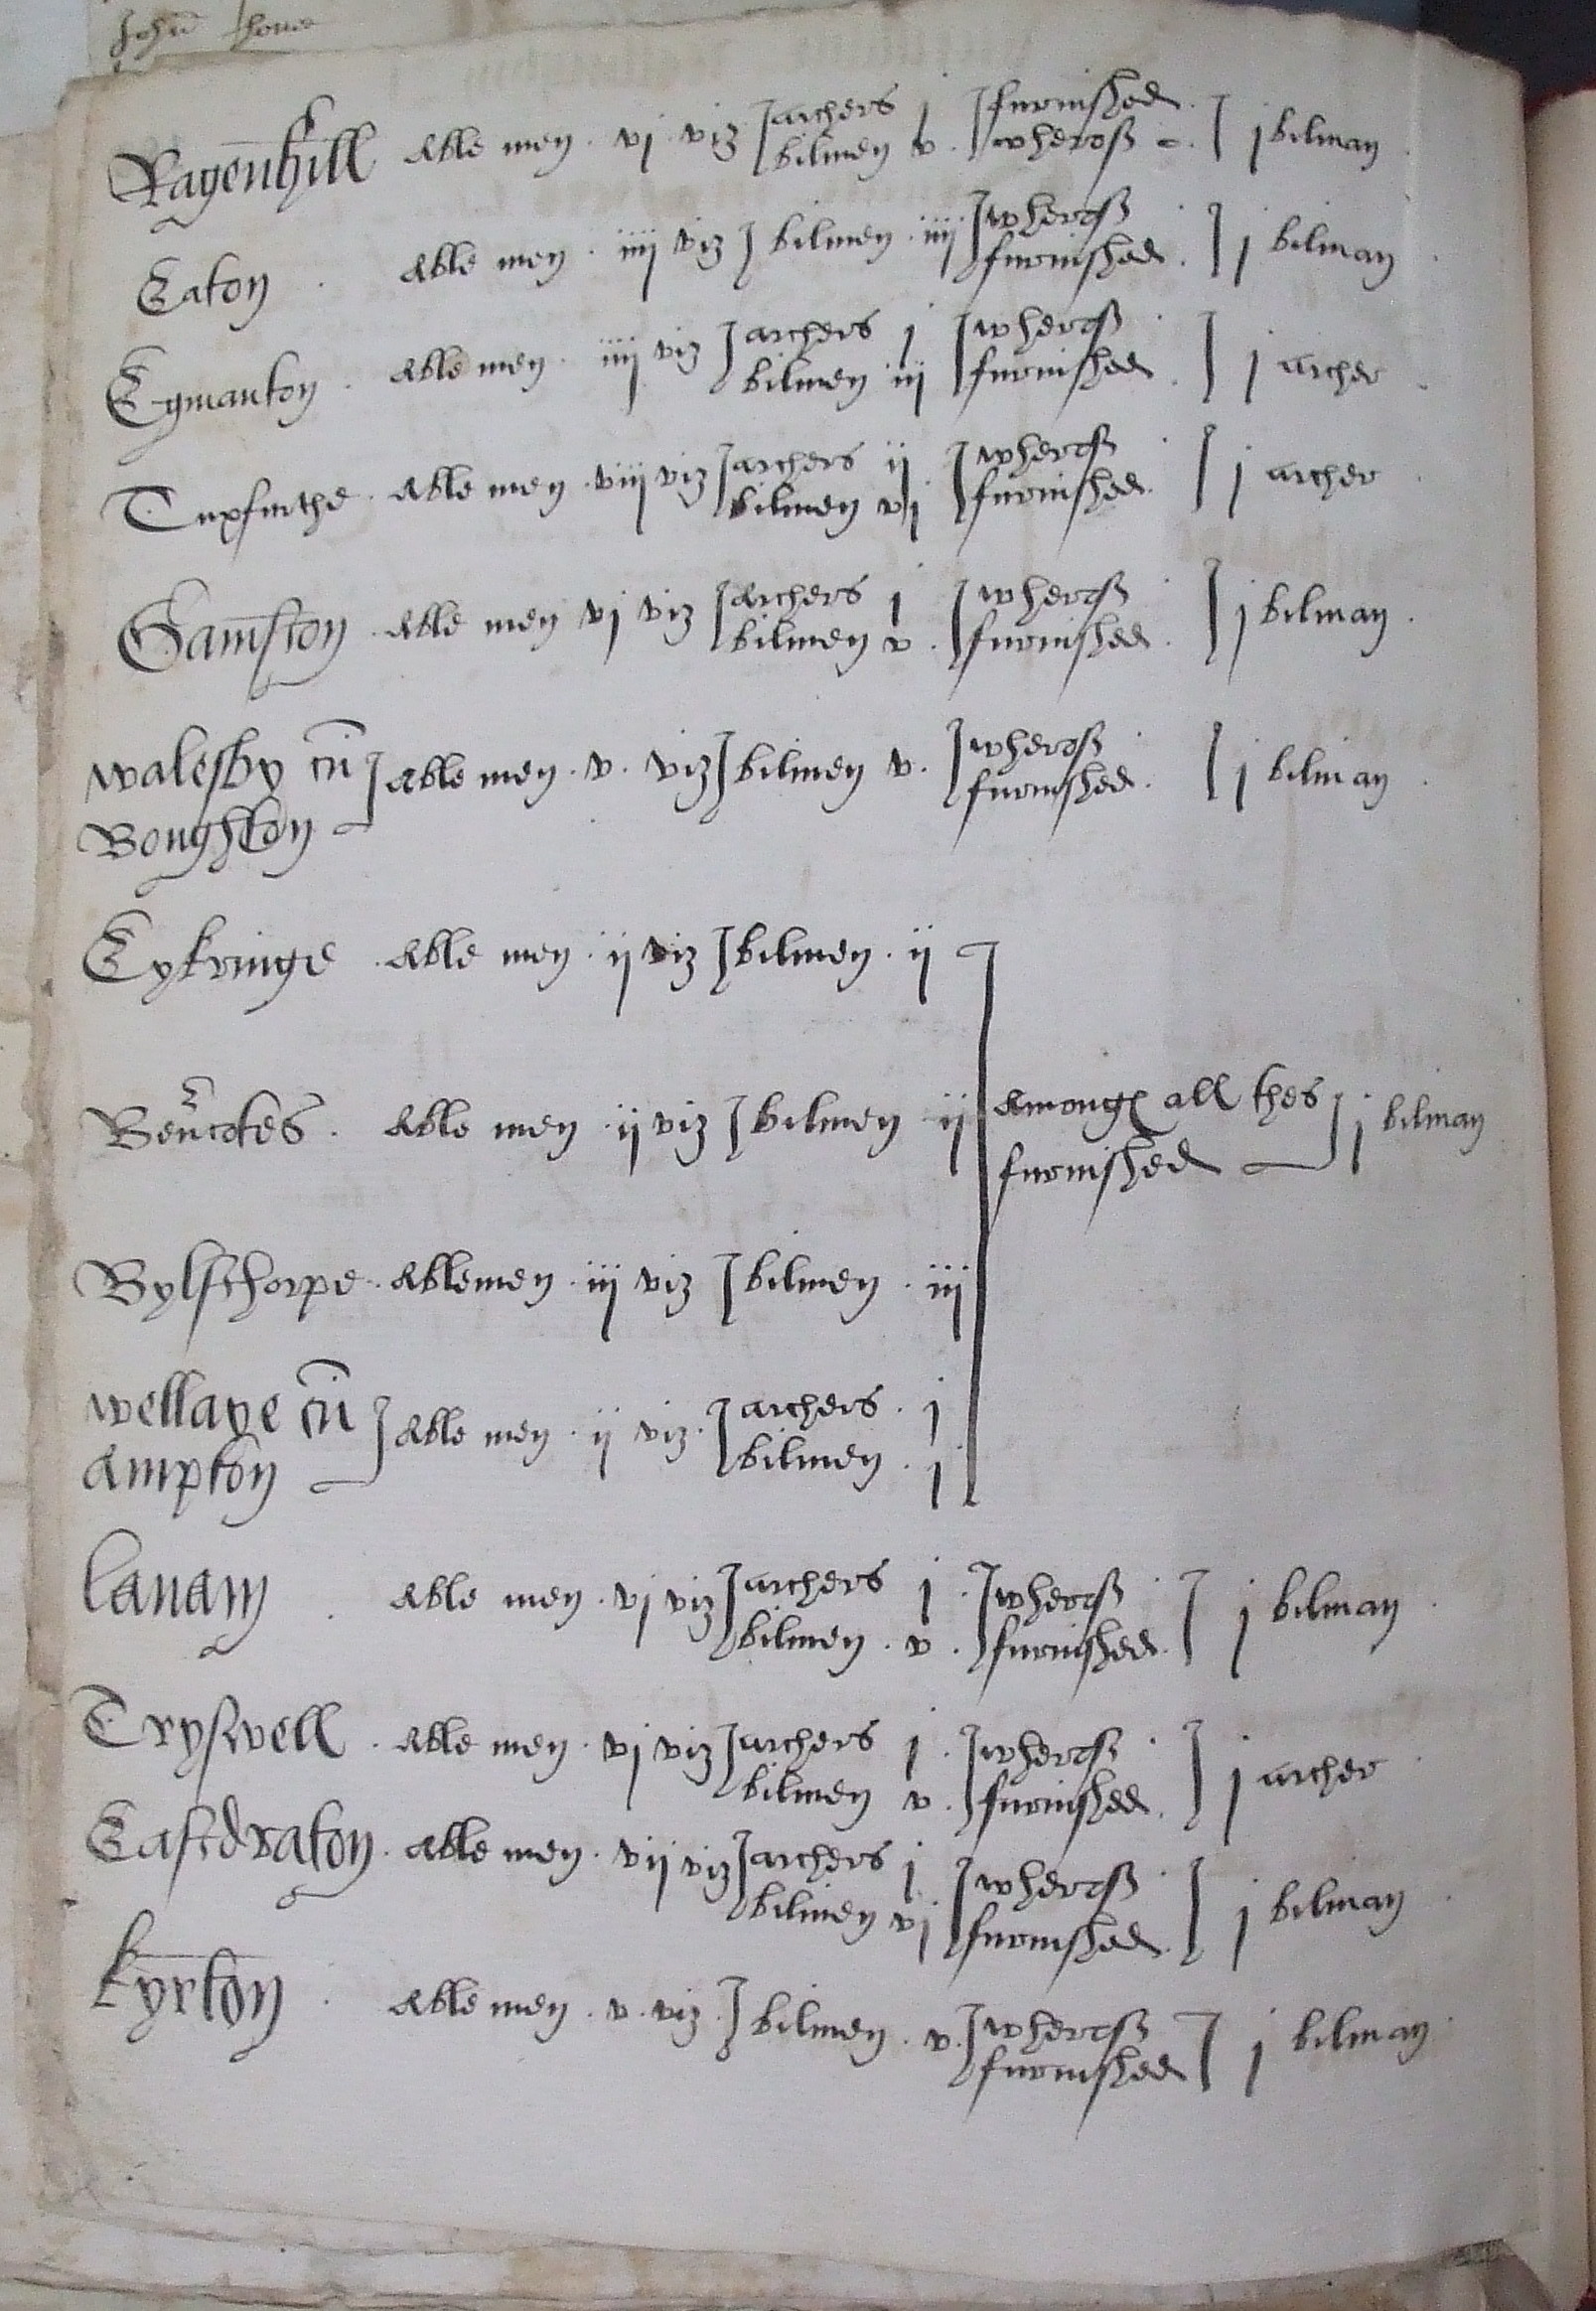 John
Ragenhill Able men . vj . viz archers j furnished
bilmen v . wherof j bilman
Eaton . Able men . iiij viz bilmen . iiij wherof
furnished . j bilman
Egmanton . Able men . iiij viz archers j wherof
bilmen iij furnished . j archer
Tuxfurthe . Able men . viij viz archers ij wherof
bilmen vj furnished . j archer
Gamston . Able men vj viz archers j wherof
bilmen v . furnished . j bilman .
walesby cu̅ Able men . v . viz bilmen v . wherof
Boughton furnished . j bilman .
Eykringe . Able men . ij viz bilmen . ij
Amongs all thes
Bev̅cotes . Able men . ij viz bilmen ij j bilman
furnished
Bylsthorpe . Ablemen . iij viz bilmen . iij
wellaye cu̅ Able men . ij viz . archers . j
Ampton bilmen . j
lanam . Able men . vj viz archers j . wherof
bilmen . v . furnished . j bilman .
Tryswell . Able men . vj viz archers j . wherof
bilmen v . furnished . j archer .
Eastdraton . Able men . vij viz archers j wherof
bilmen vj furnished . j bilman .
kyrton . Able men . v . viz . bilmen . v . wherof
furnished j bilman .